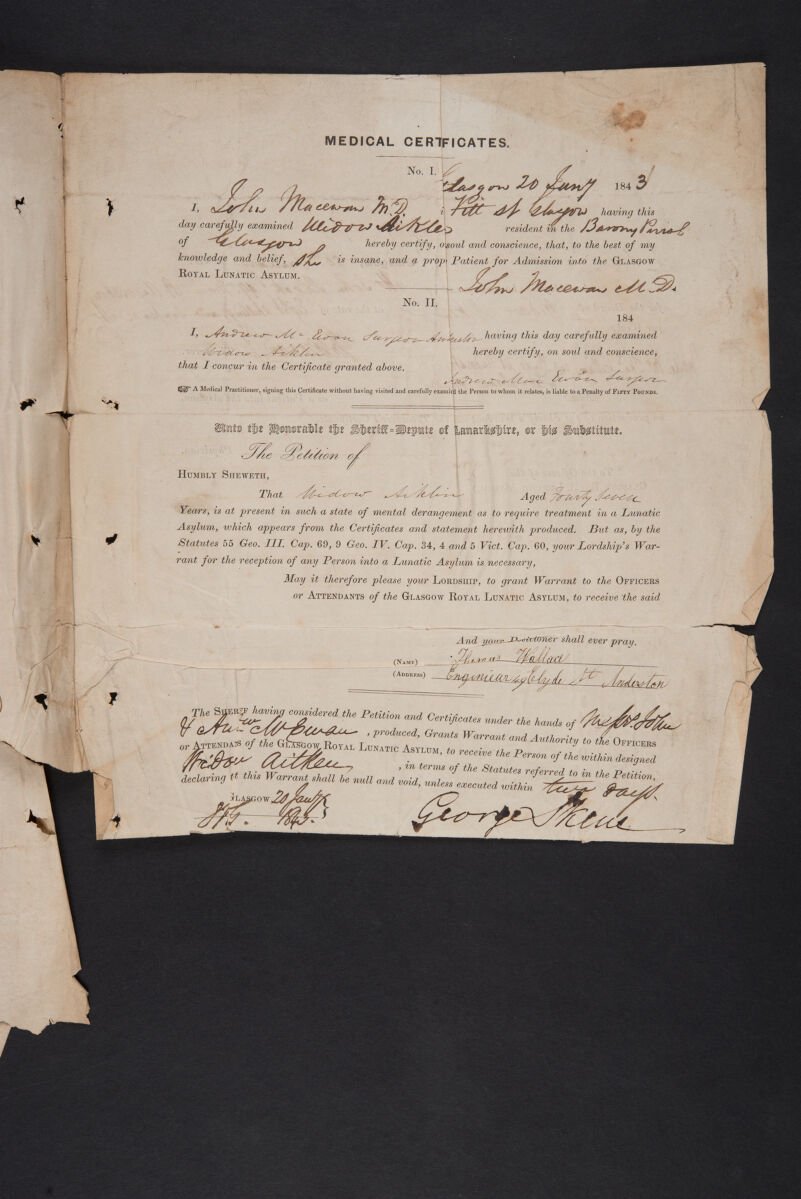 MEDICAL CERTIFICATES.
No. I.
Glasgow 20 Jany 1843
I, John Macewan M.D. Pitt St Glasgow having this
day carefully examined Widow Aitken resident in the Barony Parish
of Glasgow hereby certify, on soul and conscience, that, to the best of my
knowledge and belief, she is insane, and a prop Patient for Admission into the GLASGOW
ROYAL LUNATIC ASYLUM.
John Macewan M.D.
No. II.
184
I, Andrew Mc Ewan Surgeon Anderston having this day carefully examined
Widow Aiklin hereby certify, on soul and conscience,
that I concur in the Certificate granted above.
Andrew Mac Ewan Surgeon
☞ A Medical Practitioner, signing this Certificate without having visited and carefully examined the Person to whom it relates, is liable to a Penalty of FIFTY POUNDS.
Unto the Honorable the Sheriff-Depute of Lanarkshire, or his Substitute.
The Petition of
HUMBLY SHEWETH,
That Widow Aiklin Aged Fourty Seven
Years, is at present in such a state of mental derangement as to require treatment in a Lunatic
Asylum, which appears from the Certificates and statement herewith produced. But as, by the
Statutes 55 Geo. III. Cap. 69, 9 Geo. IV. Cap. 34, 4 and 5 Vict. Cap. 60, your Lordship's War-
rant for the reception of any Person into a Lunatic Asylum is necessary,
May it therefore please your LORDSHIP, to grant Warrant to the OFFICERS
or ATTENDANTS of the GLASGOW ROYAL LUNATIC ASYLUM, to receive the said
And your Petitioner shall ever pray.
(NAME) Thomas Wallace
(ADDRESS) Enginiear Clyde St Anderston
The SHERIF having considered the Petition and Certificates under the hands of John
& Andw McEwan, produced, Grants Warrant and Authority to the OFFICERS
or ATTENDATS of the GLASGOW ROYAL LUNATIC ASYLUM, to receive the Person of the within designed
Widow Aitken, in terms of the Statutes referred to in the Petition,
declaring tt this Warrant shall be null and void, unless executed within two days.
GLASGOW 20 Jany
1843.
George Skene